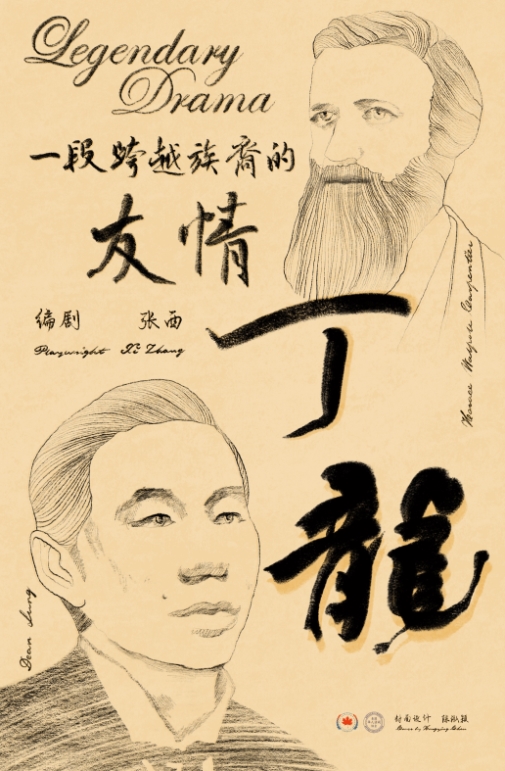 Legendary
Drama
一段跨越族裔的
友情
编剧 张西
Playwright Xi Zhang
Horace Walpole Carpentier
丁
龍
Dean Lung
封面设计